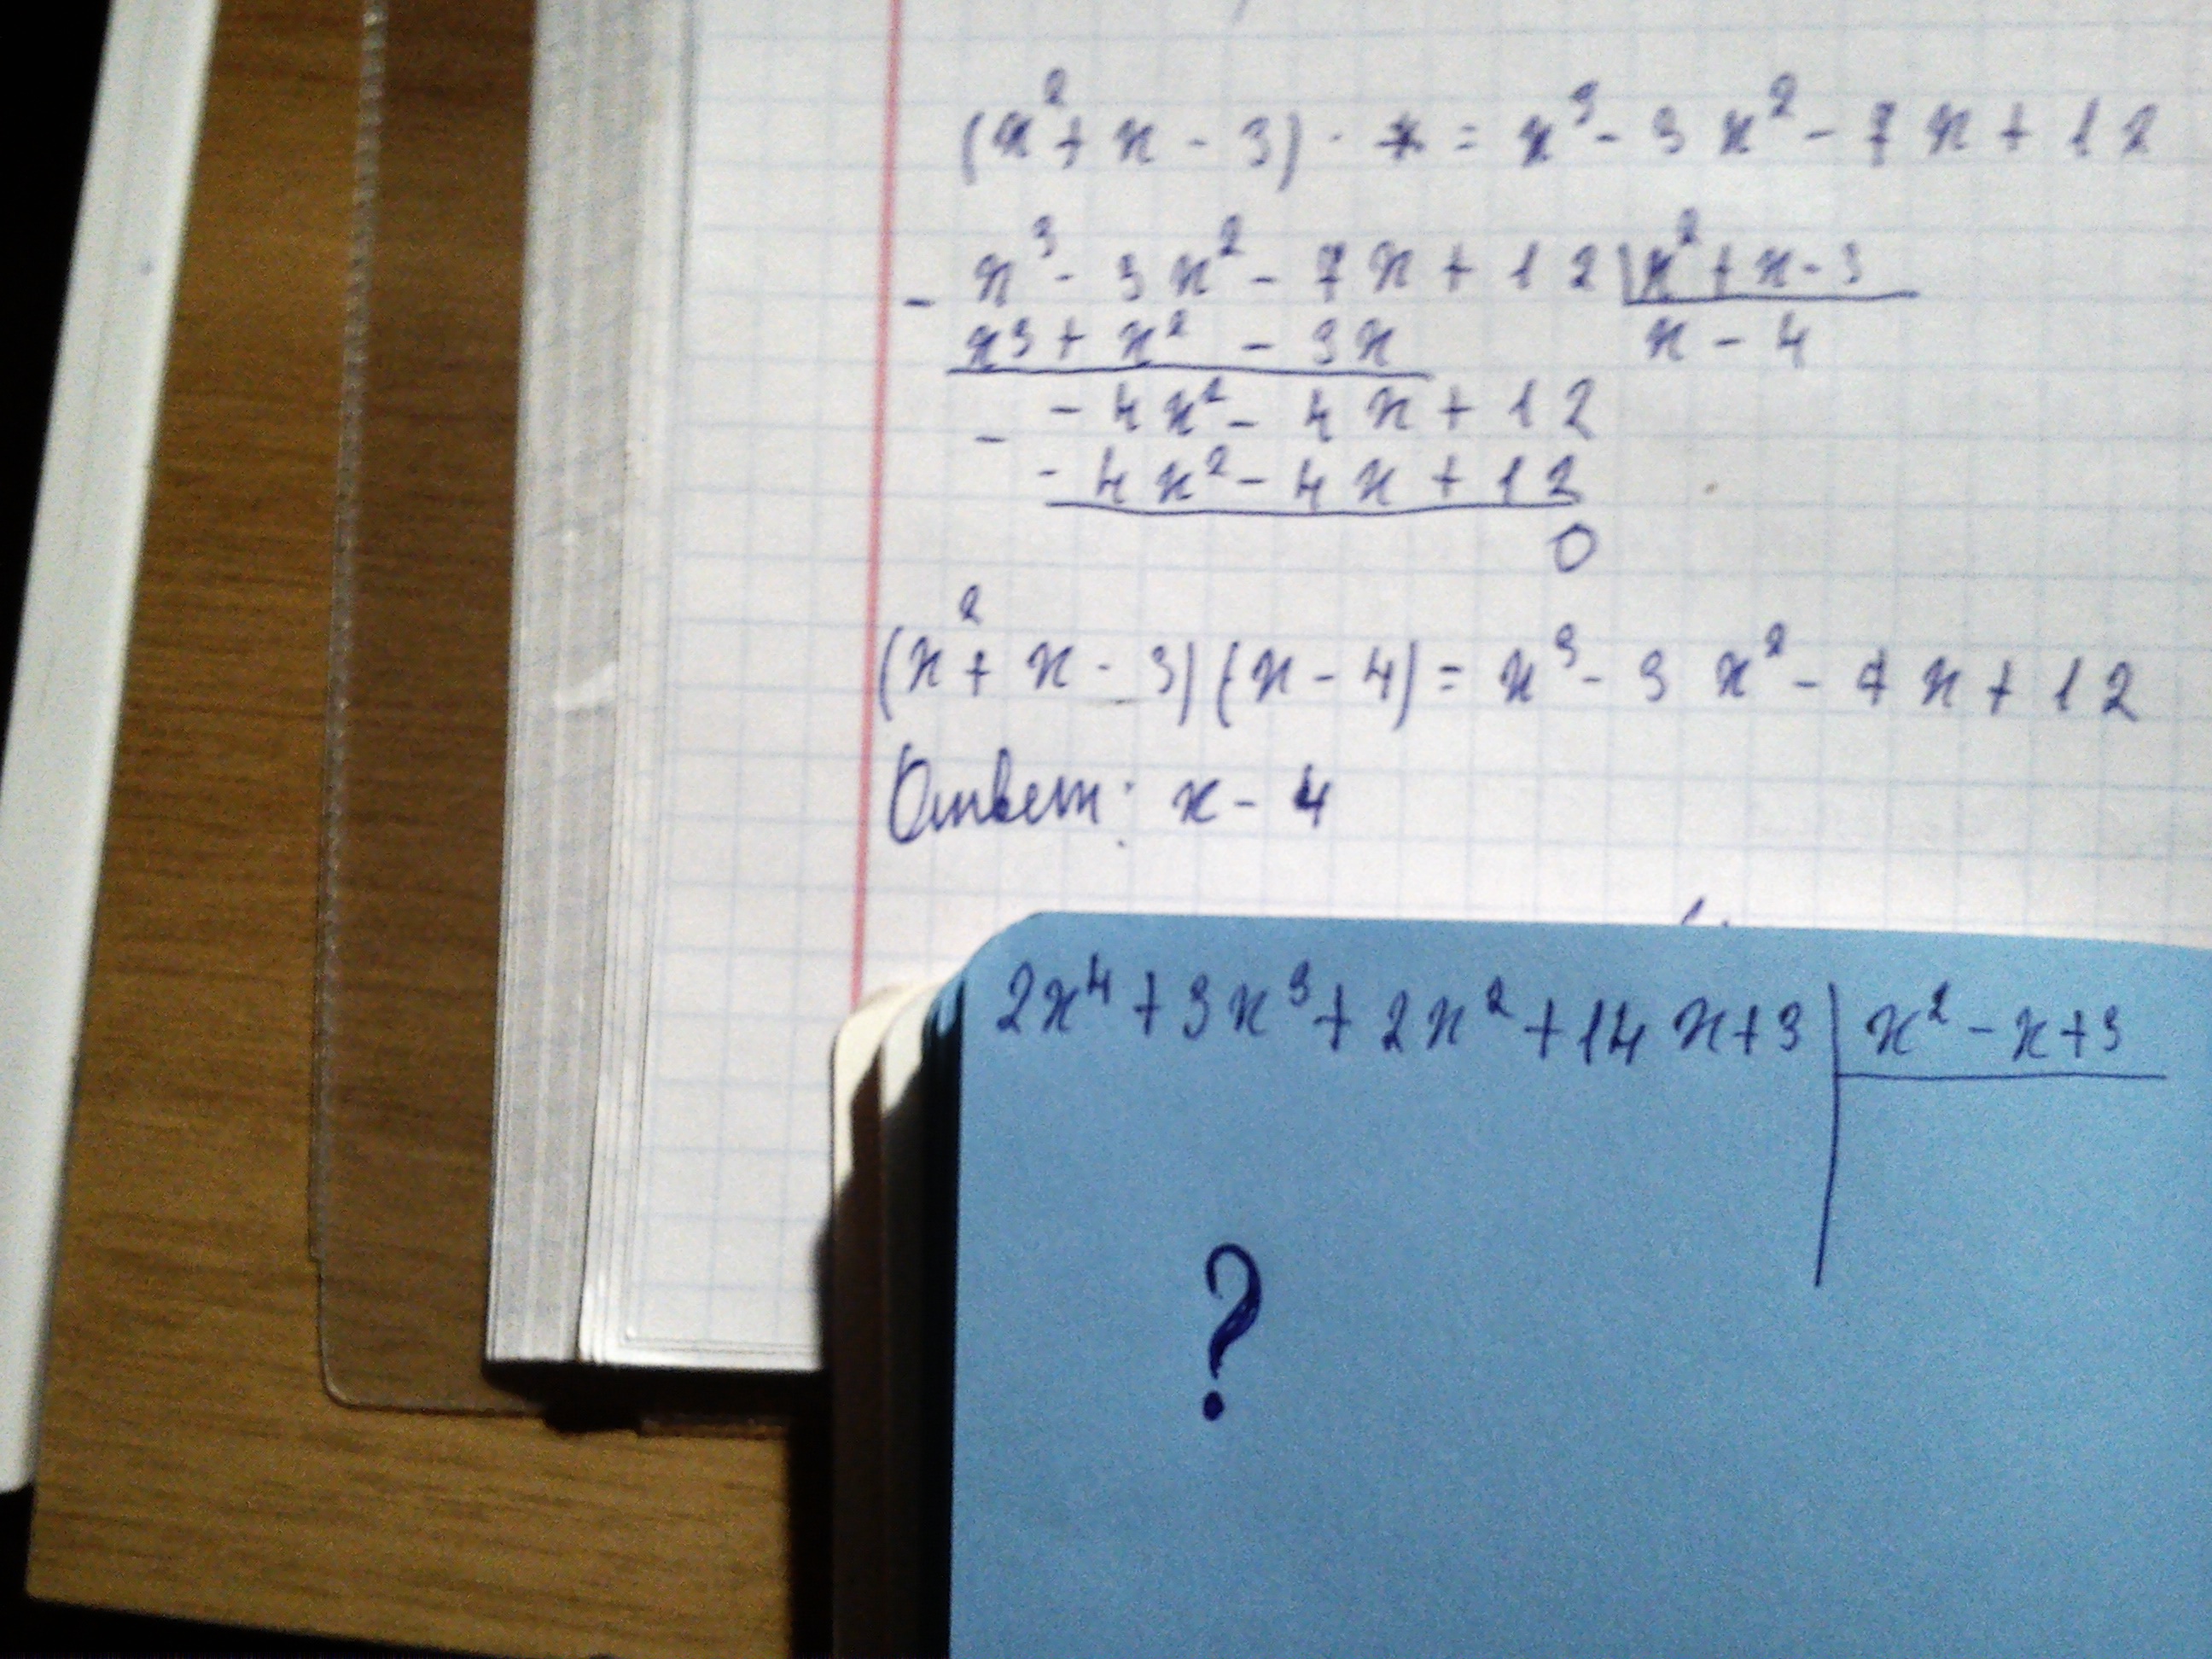 (x² + x - 3) · * = x³ - 3x² - 7x + 12
- x³ - 3x² - 7x + 12 | x² + x - 3
x³ + x² - 3x x - 4
- - 4x² - 4x + 12
- 4x² - 4x + 12
0
(x² + x - 3)(x - 4) = x³ - 3x² - 7x + 12
Ответ: x - 4
2x⁴ + 3x³ + 2x² + 14x + 3 | x² - x + 3
?